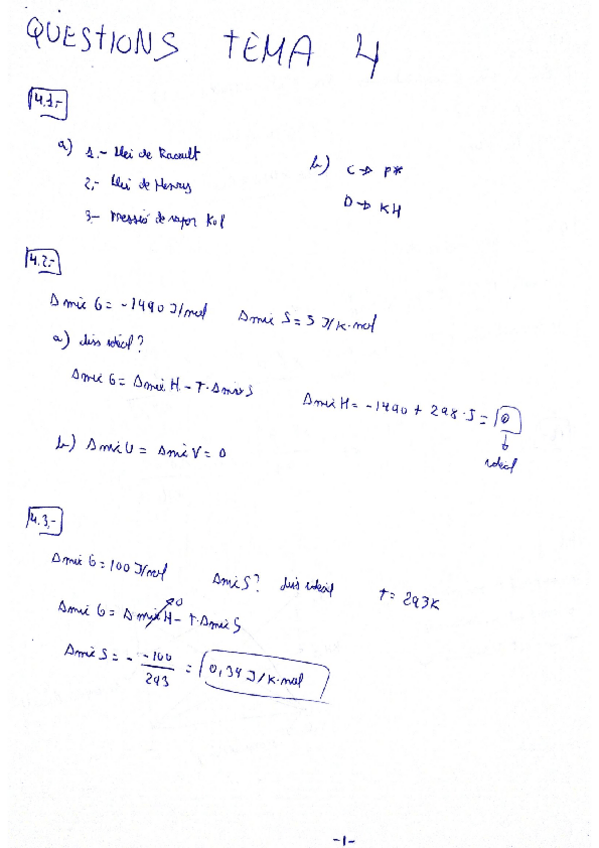 QUESTIONS TEMA 4
4.1.-
a) 1.- Llei de Raoult
2.- Llei de Henry
3.- Pressió de vapor
b) C → P*
D → KH
4.2.-
Δmix G = -1490 J/mol Δmix S = 5 J/K·mol
a) diss ideal?
Δmix G = Δmix H - T·Δmix S
Δmix H = -1490 + 298·5 = 0
↓
ideal
b) Δmix U = Δmix V = 0
4.3.-
Δmix G = 100 J/mol Δmix S? diss ideal T = 293K
Δmix G = Δmix H→0 - T·Δmix S
Δmix S = - -100/293 = 0,34 J/K·mol
-1-